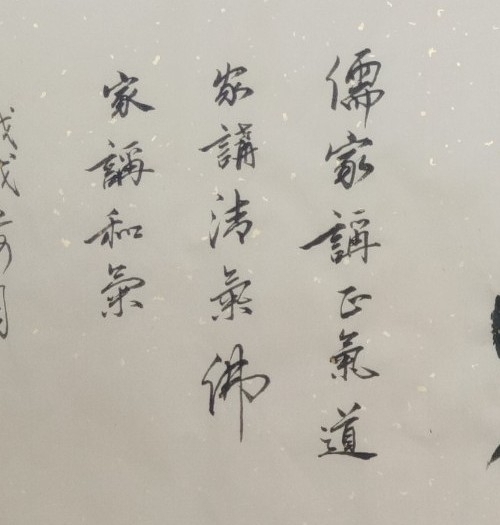 儒家講正氣道
家講清氣佛
家講和氣
戊戌